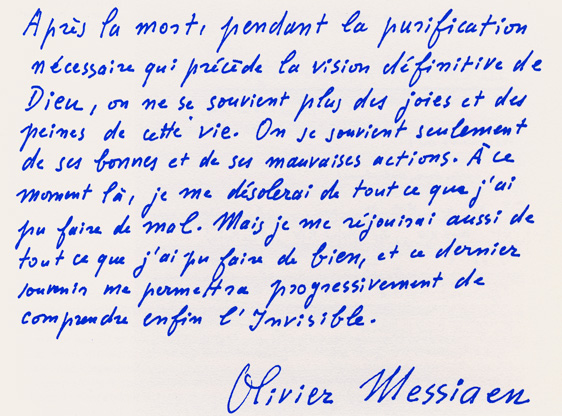 Après la mort, pendant la purification
nécessaire qui précède la vision définitive de
Dieu, on ne se souvient plus des joies et des
peines de cette vie. On se souvient seulement
de ses bonnes et de ses mauvaises actions. À ce
moment là, je me désolerai de tout ce que j'ai
pu faire de mal. Mais je me réjouirai aussi de
tout ce que j'ai pu faire de bien, et ce dernier
souvenir me permettra progressivement de
comprendre enfin l'Invisible.
Olivier Messiaen